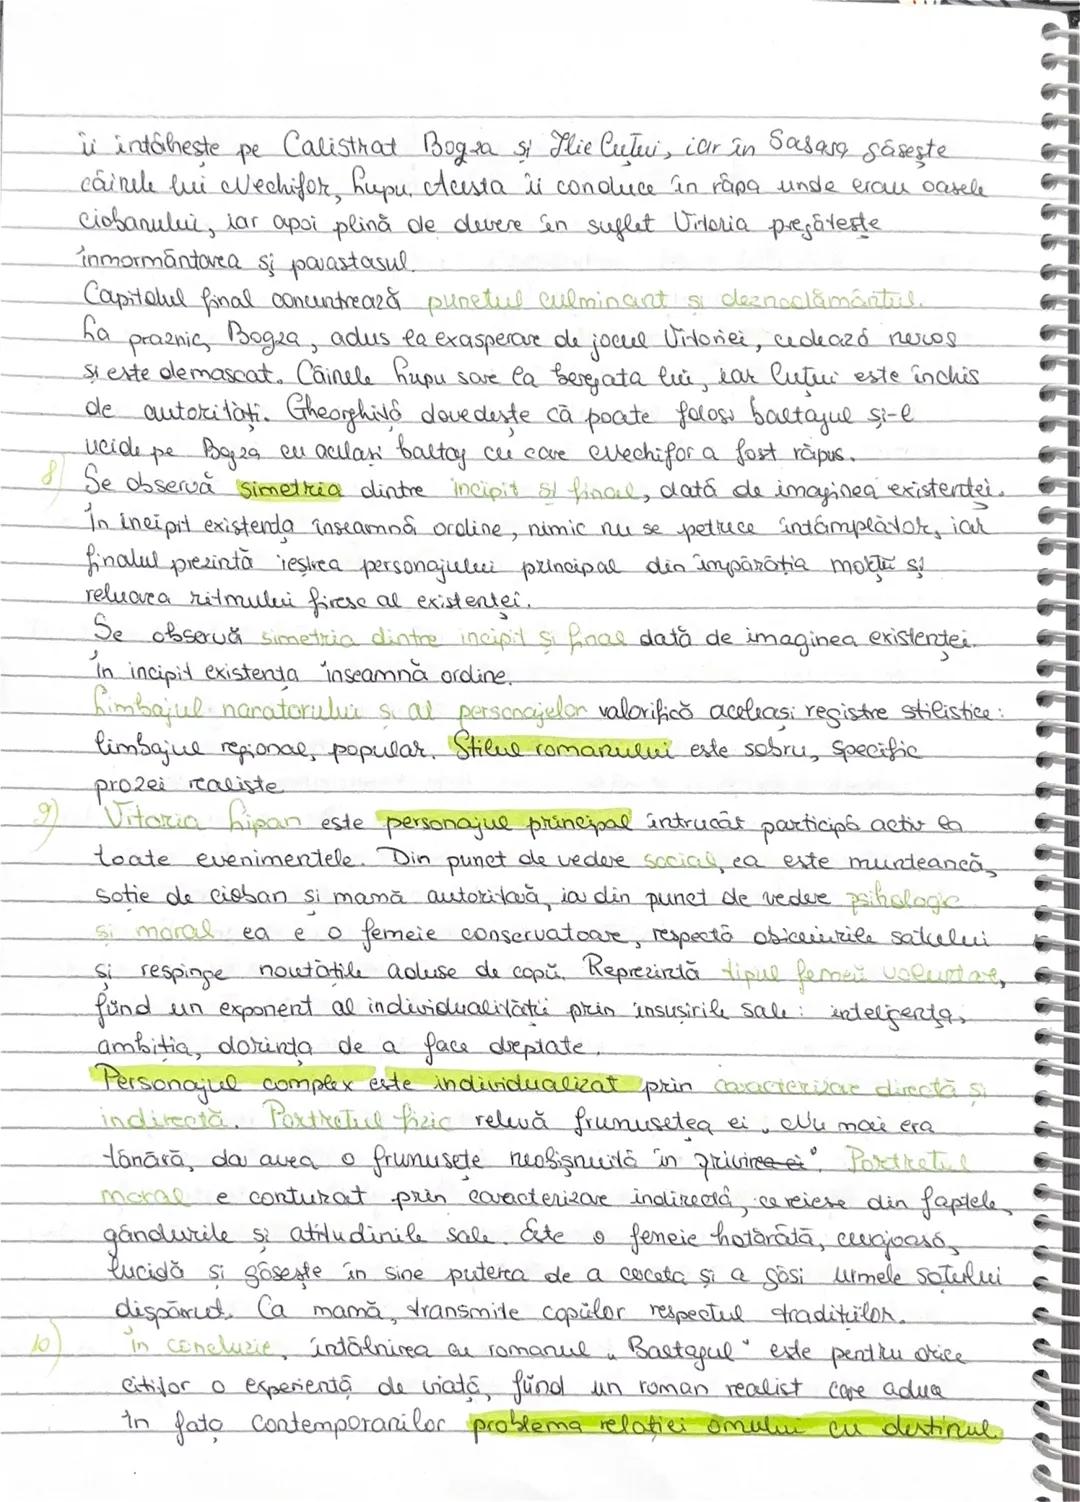 îi întâlnește pe Calistrat Bogza și Ilie Cuțui, iar în Sabasa găsește
câinele lui Nechifor, Lupu. Acesta îi conduce în râpa unde erau oasele
ciobanului, iar apoi plină de durere în suflet Vitoria pregătește
înmormântarea și parastasul.
Capitolul final concentrează punctul culminant și deznodământul.
La praznic, Bogza, adus la exasperare de jocul Vitoriei, cedează nervos
și este demascat. Câinele Lupu sare la beregata lui, iar Cuțui este închis
de autorități. Gheorghiță dovedește că poate folosi baltagul și-l
ucide pe Bogza cu același baltag cu care Nechifor a fost răpus.
8) Se observă simetria dintre incipit și final, dată de imaginea existenței.
În incipit existența înseamnă ordine, nimic nu se petrece întâmplător, iar
finalul prezintă ieșirea personajului principal din împărăția morții și
reluarea ritmului firesc al existenței.
Se observă simetria dintre incipit și final dată de imaginea existenței.
În incipit existența înseamnă ordine.
Limbajul naratorului și al personajelor valorifică aceleași registre stilistice:
limbajul regional, popular. Stilul romanului este sobru, specific
prozei realiste
9) Vitoria Lipan este personajul principal întrucât participă activ la
toate evenimentele. Din punct de vedere social, ea este munteancă,
soție de cioban și mamă autoritară, iar din punct de vedere psihologic
și moral ea e o femeie conservatoare, respectă obiceiurile satului
și respinge noutățile aduse de copii. Reprezintă tipul femeii voluntare,
fiind un exponent al individualității prin însușirile sale: inteligența,
ambiția, dorința de a face dreptate.
Personajul complex este individualizat prin caracterizare directă și
indirectă. Portretul fizic relevă frumusețea ei „Nu mai era
tânără, dar avea o frumusețe neobișnuită în privire ei”. Portretul
moral e conturat prin caracterizare indirectă, ce reiese din faptele,
gândurile și atitudinile sale. Este o femeie hotărâtă, curajoasă,
lucidă și găsește în sine puterea de a căuta și a găsi urmele soțului
dispărut. Ca mamă, transmite copiilor respectul tradițiilor.
10) În concluzie, întâlnirea cu romanul „Baltagul” este pentru orice
cititor o experiență de viață, fiind un roman realist care aduce
în fața contemporanilor problema relației omului cu destinul